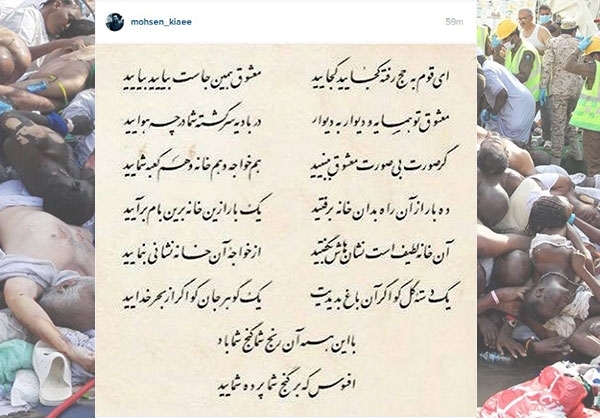 mohsen_kiaee 59m
ای قوم به حج رفته کجایید کجایید معشوق همین جاست بیایید بیایید
معشوق تو همسایه و دیوار به دیوار در بادیه سرگشته شما در چه هوایید
گر صورت بی صورت معشوق ببینید هم خواجه و هم خانه و هم کعبه شمایید
ده بار از آن راه بدان خانه برفتید یک بار از این خانه برین بام برآیید
آن خانه لطیف است نشان هاش بگفتید از خواجه آن خانه نشانی بنمایید
یک دسته گل کو اگر آن باغ بدیدیت یک گوهر جان کو اگر از بحر خدایید
با این همه آن رنج شما گنج شما باد
افسوس که بر گنج شما پرده شمایید